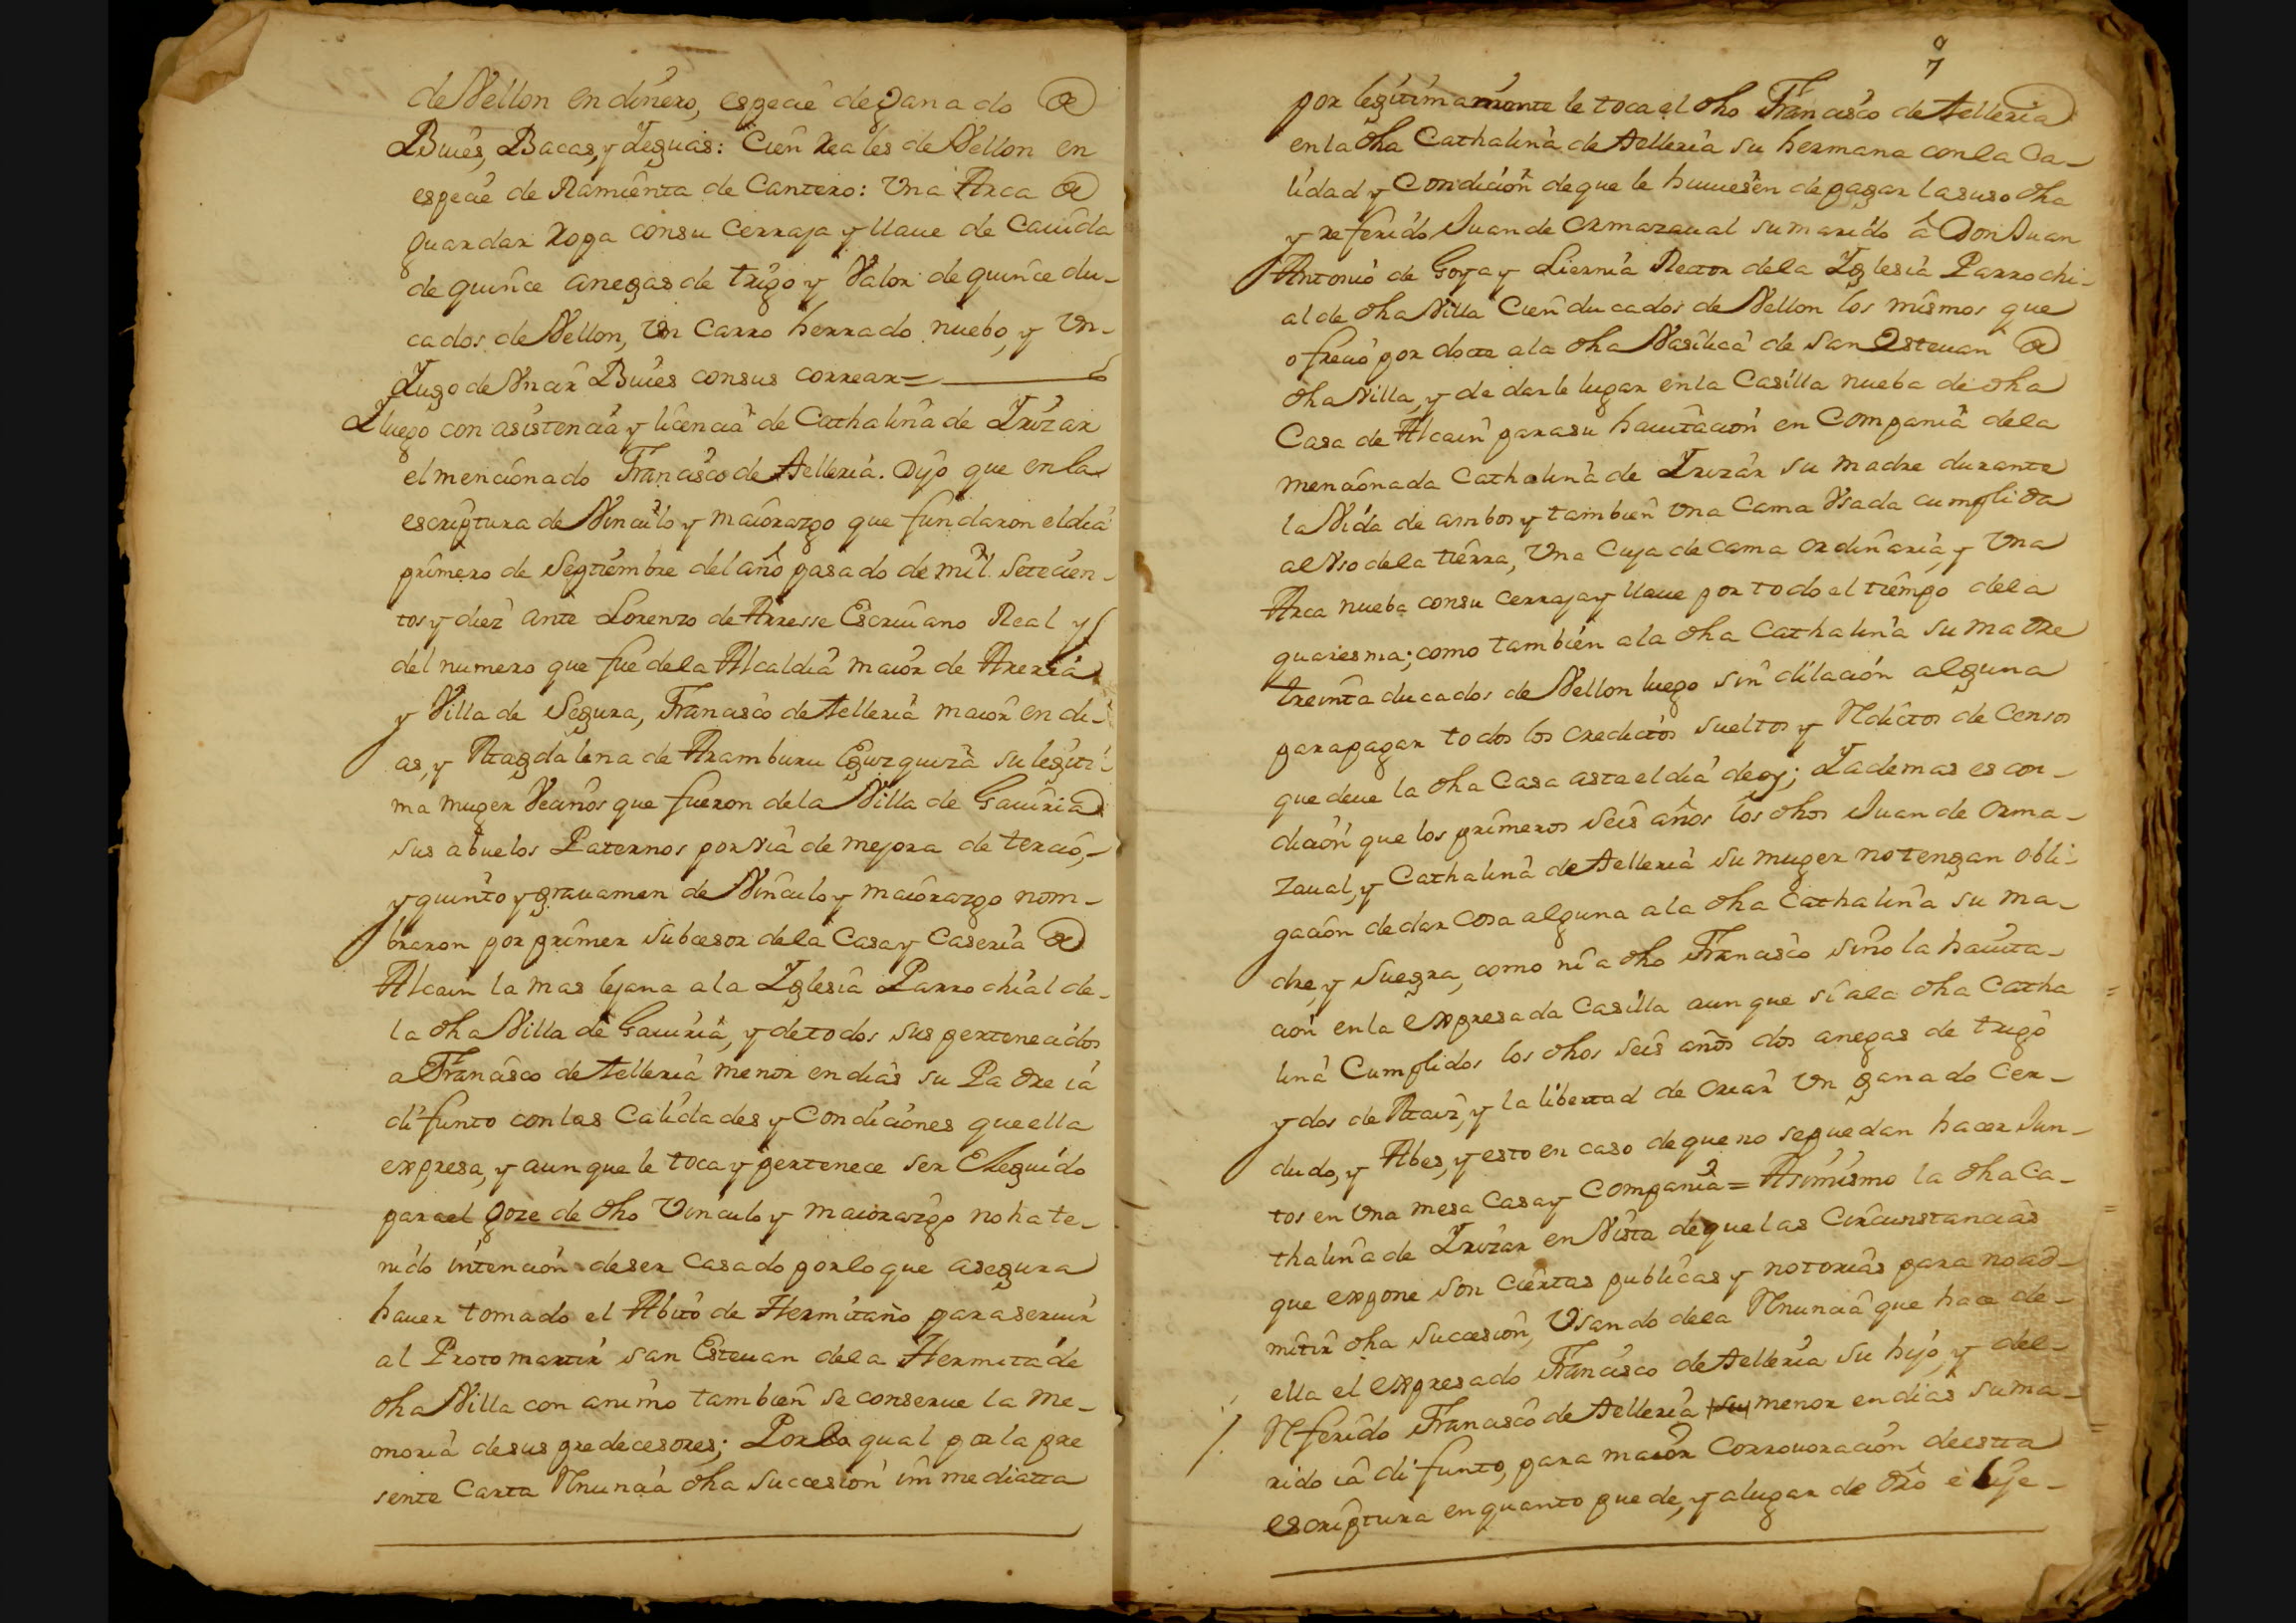 de Vellon en dinero, especie de ganado de
Buies, Bacas, y Yeguas: Cien Reales de Vellon en
especie de Ramienta de Cantero: Vna Arca de
guardar Ropa con su Cerraja y llaue de Cauida
de quince anegas de trigo y Valor de quince du-
cados de Vellon, Vn Carro herrado nuebo, y Vn-
Yugo de Vncir Buies con sus correar=
Y luego con asistencia y licencia de Cathalina de Yrizar
el mencionado Francisco de Telleria. Dijo que en la
escriptura de Vinculo y maiorazgo que fundaron el dia
primero de Septiembre del año pasado de mil setecien-
tos y diez ante Lorenzo de Arresse Escriuano Real y
del numero que fue de la Alcaldia maior de Areria
y Villa de Segura, Francisco de Telleria maior en di-
as, y Magdalena de Aramburu Eguzquiza su legiti-
ma muger Vecinos que fueron de la Villa de Gauiria
sus abuelos Paternos por via de mejora de tercio,-
y quinto y grauamen de Vinculo y maiorazgo nom-
braron por primer Subcesor de la Casa y Caseria de
Alcain la mas lejana a la Yglesia Parrochial de-
la dha Villa de Gauiria, y de todos sus pertenecidos
a Francisco de Telleria menor en dias su Padre ia
difunto con las Calidades y Condiciones que ella
expresa, y aunque le toca y pertenece ser Eleguido
para el goze de dho Vinculo y maiorazgo no ha te-
nido intencion de ser Casado por lo que asegura
hauer tomado el Abito de Hermitaño para seruir
al Protomartir san Esteuan de la Hermita de
dha Villa con animo tambien se conserue la me-
moria de sus predecesores; Por lo qual por la pre
sente Carta Rnuncia dha Succesion immediatta
7
por legitimamente le toca el dho Francisco de Telleria
en la dha Cathalina de Telleria su hermana con la Ca-
lidad y Condicion de que le huuiesen de pagar la suso dha
y referido Juan de Ormazaual su marido â Don Juan
Antonio de Goya y Liernia Rector de la Yglesia Parrochi-
al de dha Villa Cien ducados de Vellon los mismos que
ofrecio por docte a la dha Vasilica de San Esteuan de
dha Villa, y de darle lugar en la Casilla nueba de dha
Casa de Alcain para su hauitacion en Compania de la
mencionada Cathalina de Yrizar su madre durante
la Vida de ambos y tambien Vna Cama Vsada cumplida
al Vso de la tierra, Vna Cuja de cama ordinaria, y Vna
Arca nueba con su cerraja y llaue por todo el tiempo de la
quaresma; como tambien a la dha Cathalina su madre
treinta ducados de Vellon luego sin dilacion alguna
para pagar todos los creditos sueltos y Rdictos de Censos
que deue la dha Casa asta el dia de oy; Y ademas es con-
dicion que los primeros seis años los dhos Juan de Orma-
zaual, y Cathalina de Telleria su muger no tengan obli-
gacion de dar Cosa alguna a la dha Cathalina su ma-
dre, y Suegra, como ni a dho Francisco sino la hauita-
cion en la expresada Casilla aunque si a la dha Catha
lina Cumplidos los dhos seis años dos anegas de trigo
y dos de Maiz, y la libertad de criar Vn ganado Cer-
dudo, y Abes, y esto en caso de que no se puedan hacer Jun-
tos en Vna mesa Casa y Compania = Asimismo la dha Ca-
thalina de Yrizar en Vista de que las Circunstancias
que expone son Ciertas publicas y notorias para no ad-
mitir dha Succesion, Vsando de la Rnuncia que hace de-
ella el expresado Francisco de Telleria su hijo, y del-
Rferido Francisco de Telleria su menor en dias su ma-
rido ia difunto, para maior Corrouoracion de estta
escriptura en quanto puede, y a lugar de dro elije-